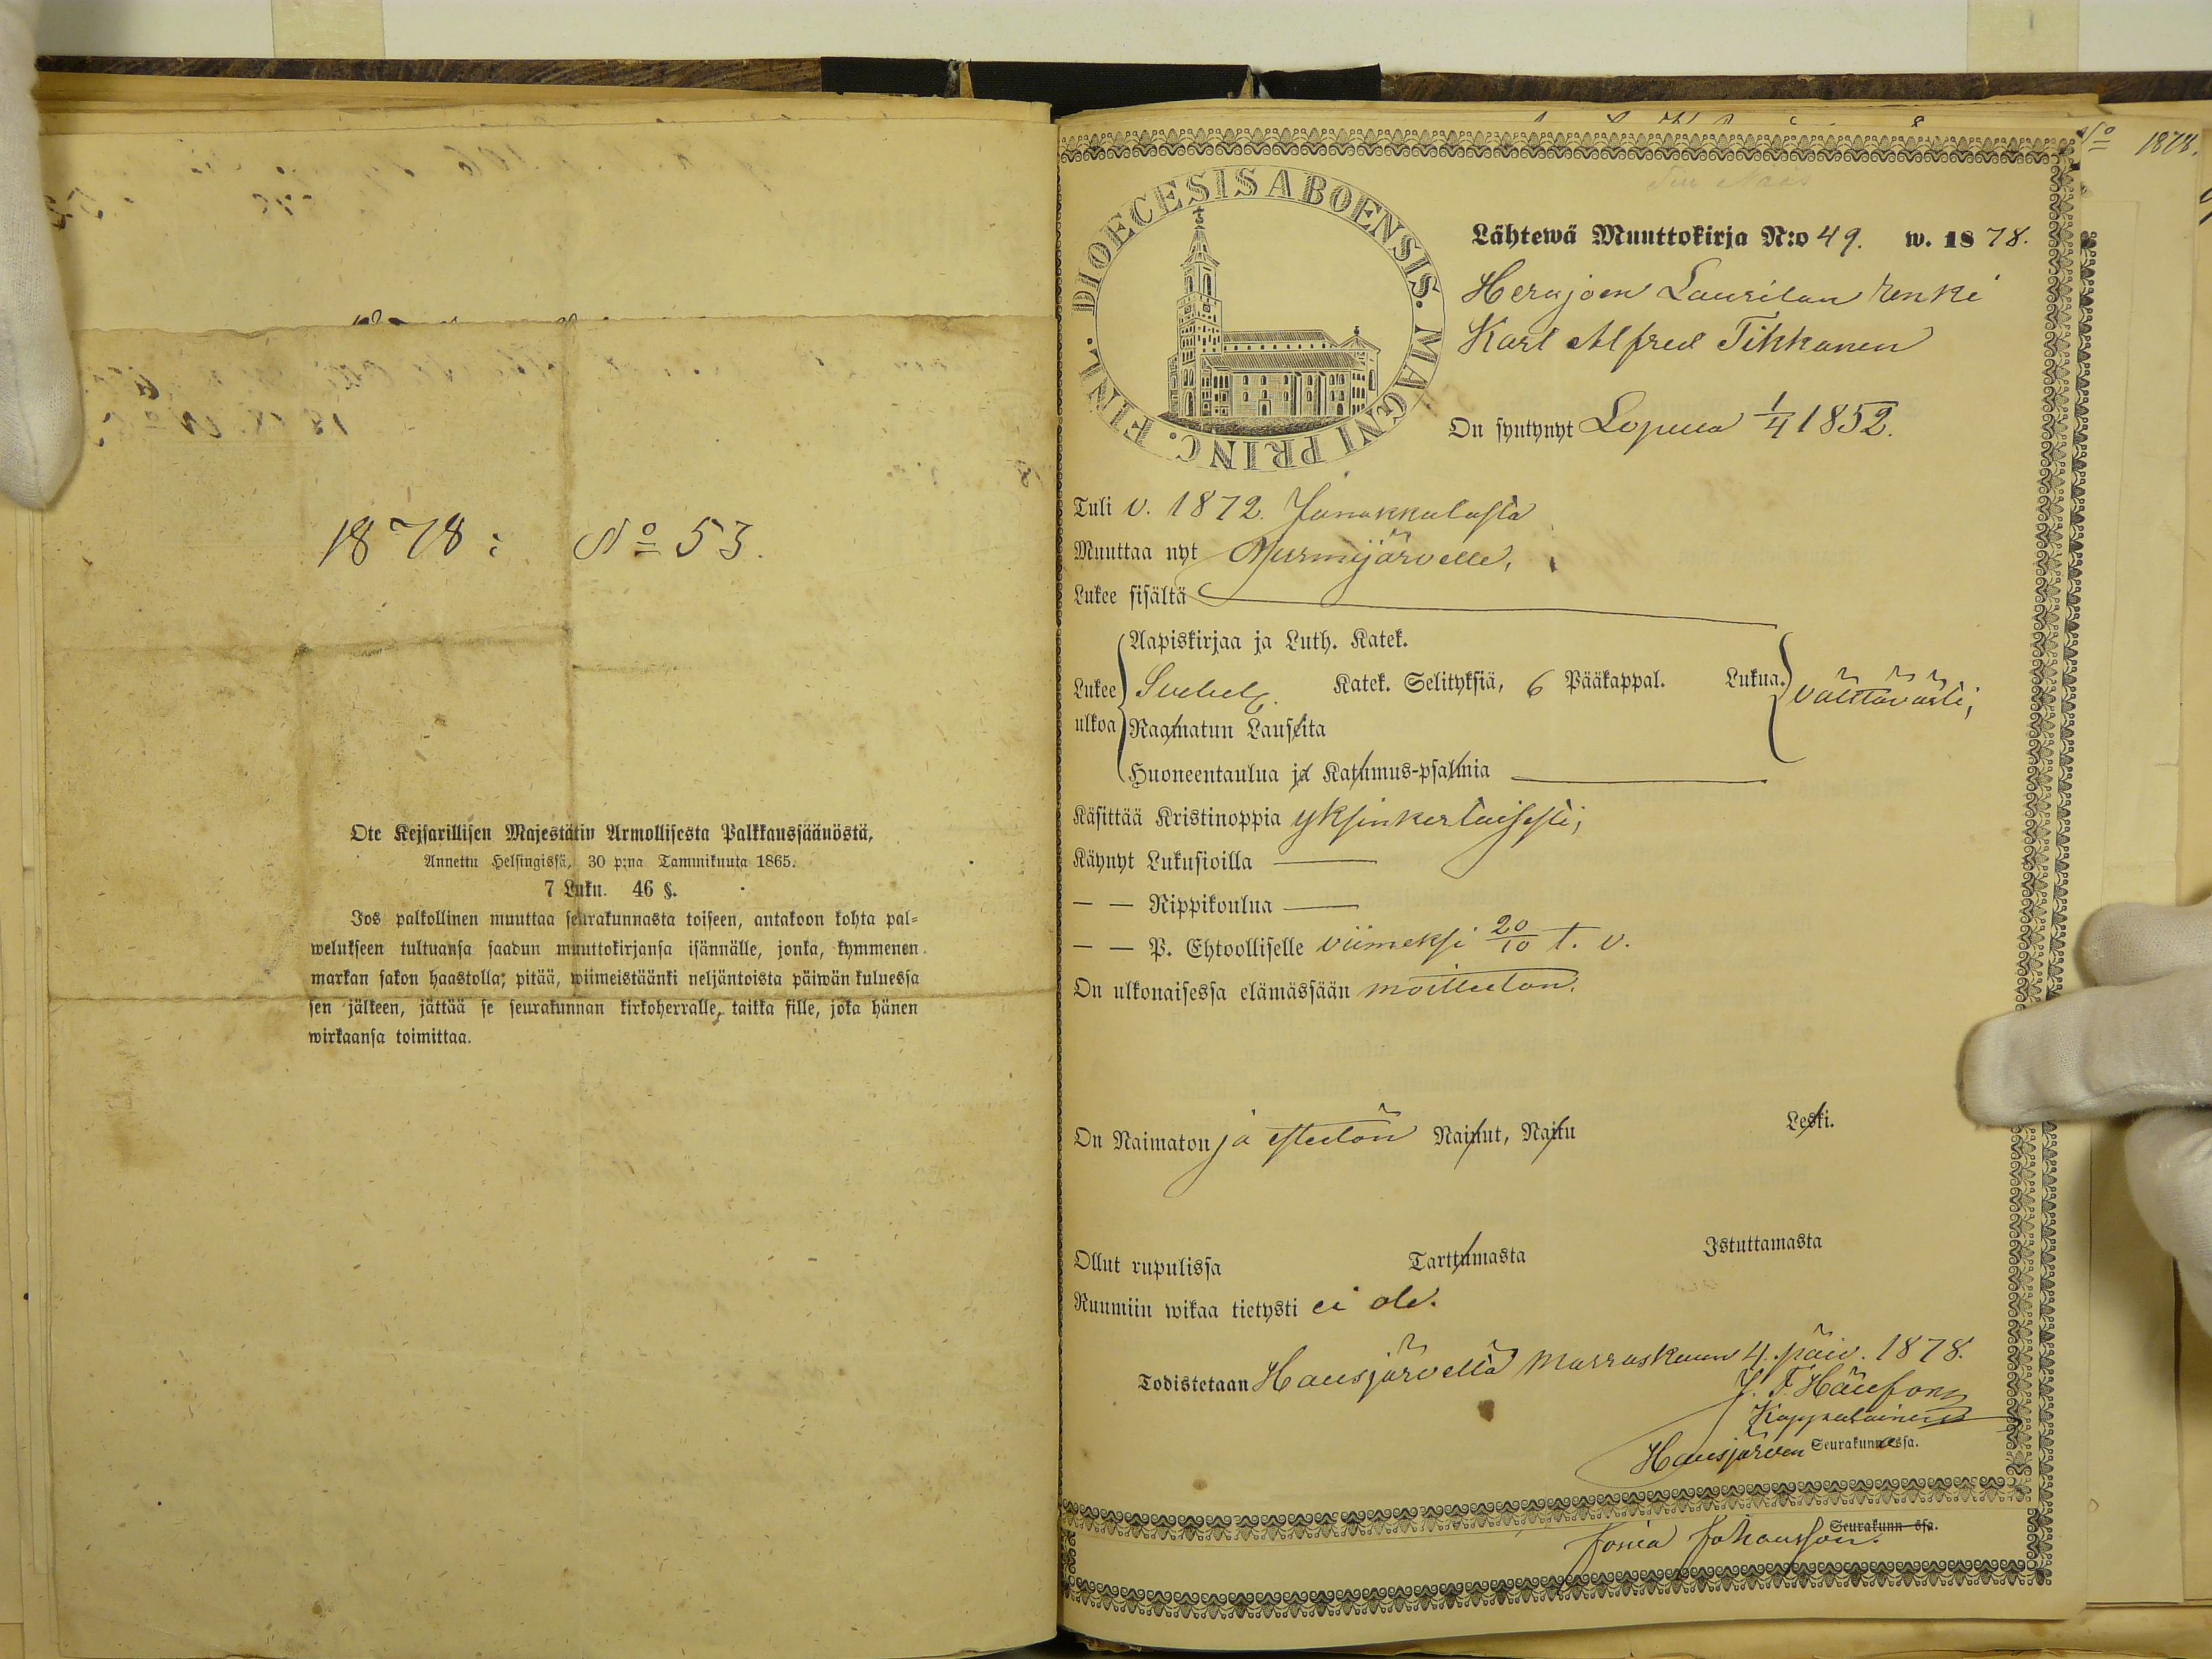 1878: No 53.
Ote Kejsarillisen Majestätin Armollisesta Palkkaussäännöstä,
Annettu Helsingissä, 30 p:na Tammikuuta 1865.
7 Luku. 46 §.
Jos palkollinen muuttaa seurakunnasta toiseen, antakoon kohta pal-
welukseen tultuansa saadun muuttokirjansa isännälle, jonka, kymmenen
markan sakon haastolla, pitää, wiimeistäänki neljäntoista päiwän kuluessa
sen jälkeen, jättää se seurakunnan kirkoherralle, taikka sille, joka hänen
wirkaansa toimittaa.
No 1878.
DIOECESIS ABOENSIS. MAGNI PRINC. FINL.
Lähtewä Muuttokirja N:o 49. w. 1878.
Herajoen Laurilan renki
Karl Alfred Tikkanen
On syntynyt Lopella 1/4 1852.
Tuli v. 1872. Janakkalasta
Muuttaa nyt Nurmijärvelle,
Lukee sisältä
Aapiskirjaa ja Luth. Katek.
Lukee Svebel. Katek. Selityksiä, 6 Pääkappal. Lukua. välttävästi,
ulkoa Raamatun Lauseita
Huoneentaulua ja Katumus-psalmia
Käsittää Kristinoppia yksinkertaisesti,
Käynyt Lukusioilla
— — Rippikoulua
— — P. Ehtoolliselle viimeksi 20/10 t. v.
On ulkonaisessa elämässään moitteeton.
On Naimaton ja esteetön Nainut, Naitu Leski.
Ollut rupulissa Tarttumasta Istuttamasta
Ruumiin wikaa tietysti ei ole.
Todistetaan Hausjärvellä Marraskuun 4. päiv. 1878.
Kappalainen
Hausjärven Seurakunnassa.
Seurakunn ssa.
Johansson.